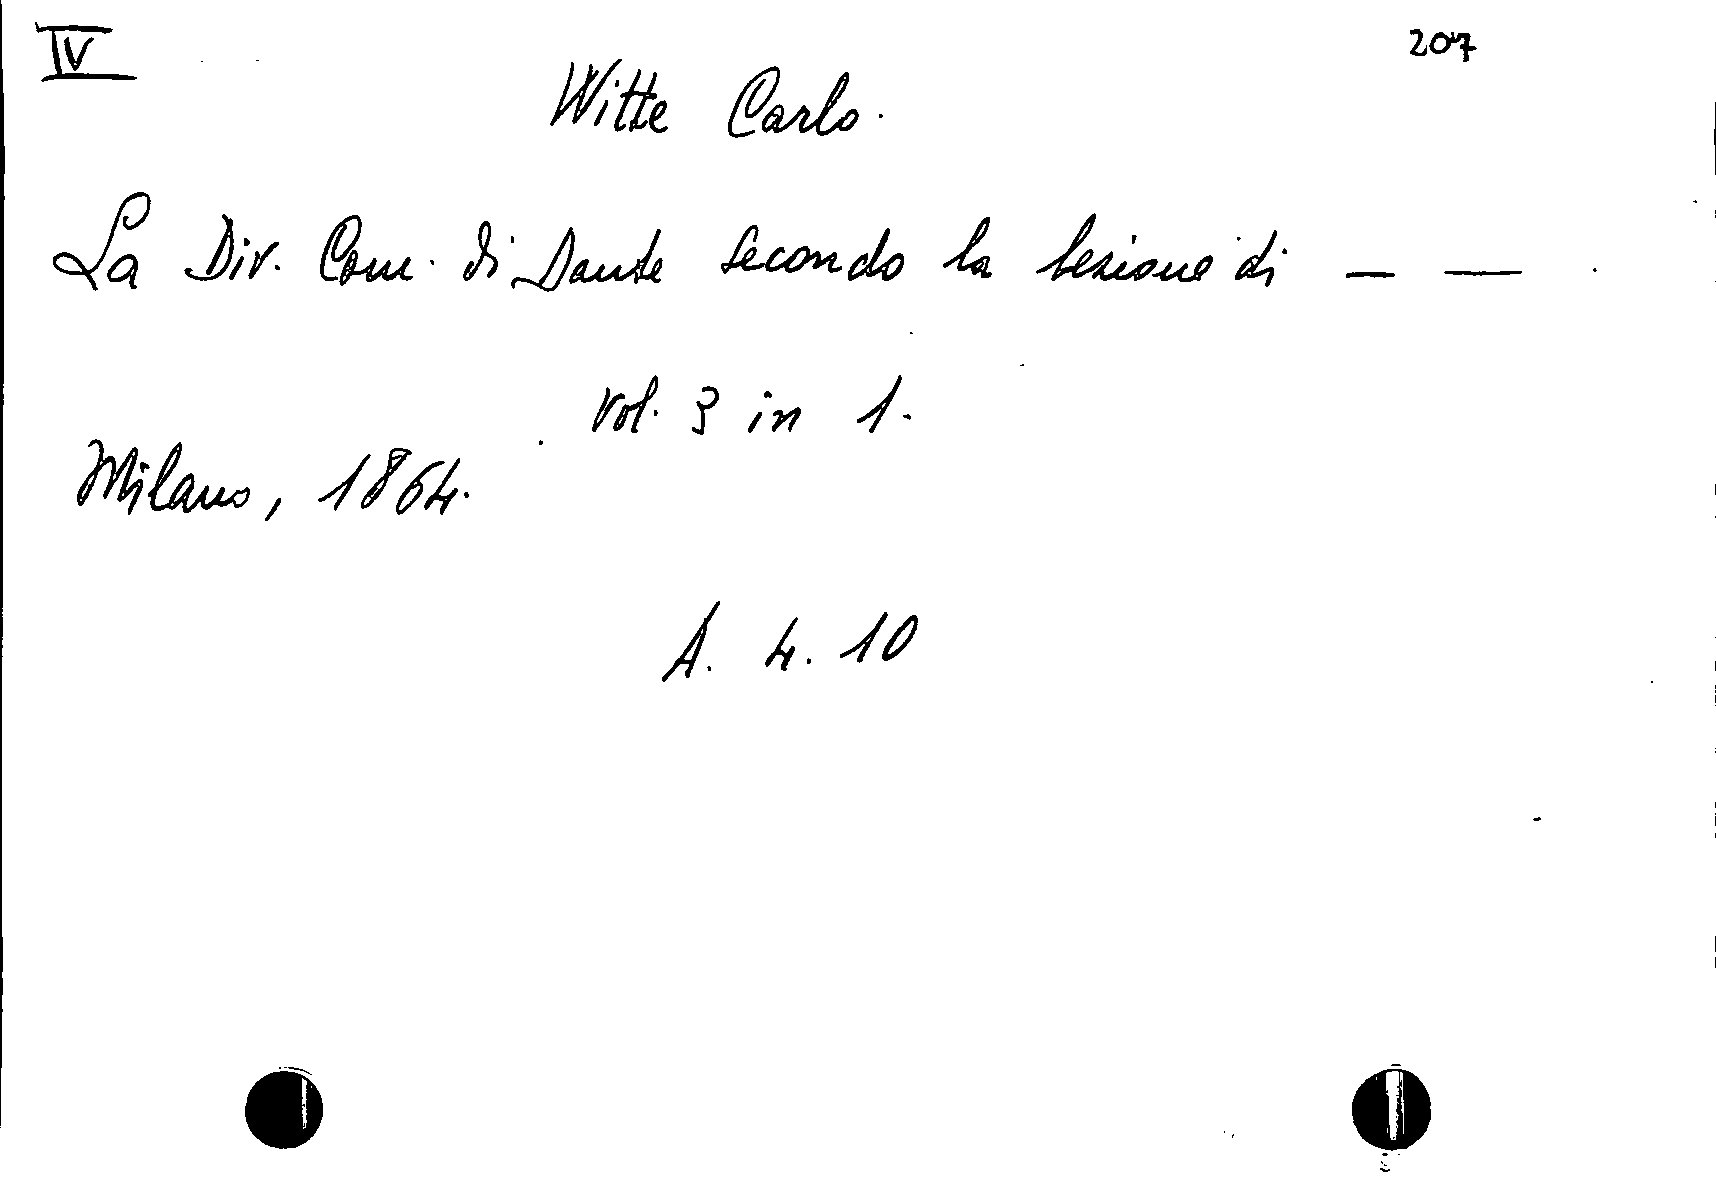 IV
207
Witte Carlo.
La Div. Com. di Dante secondo la lezione di — —
vol. 3 in 1.
Milano, 1864.
A. 4. 10